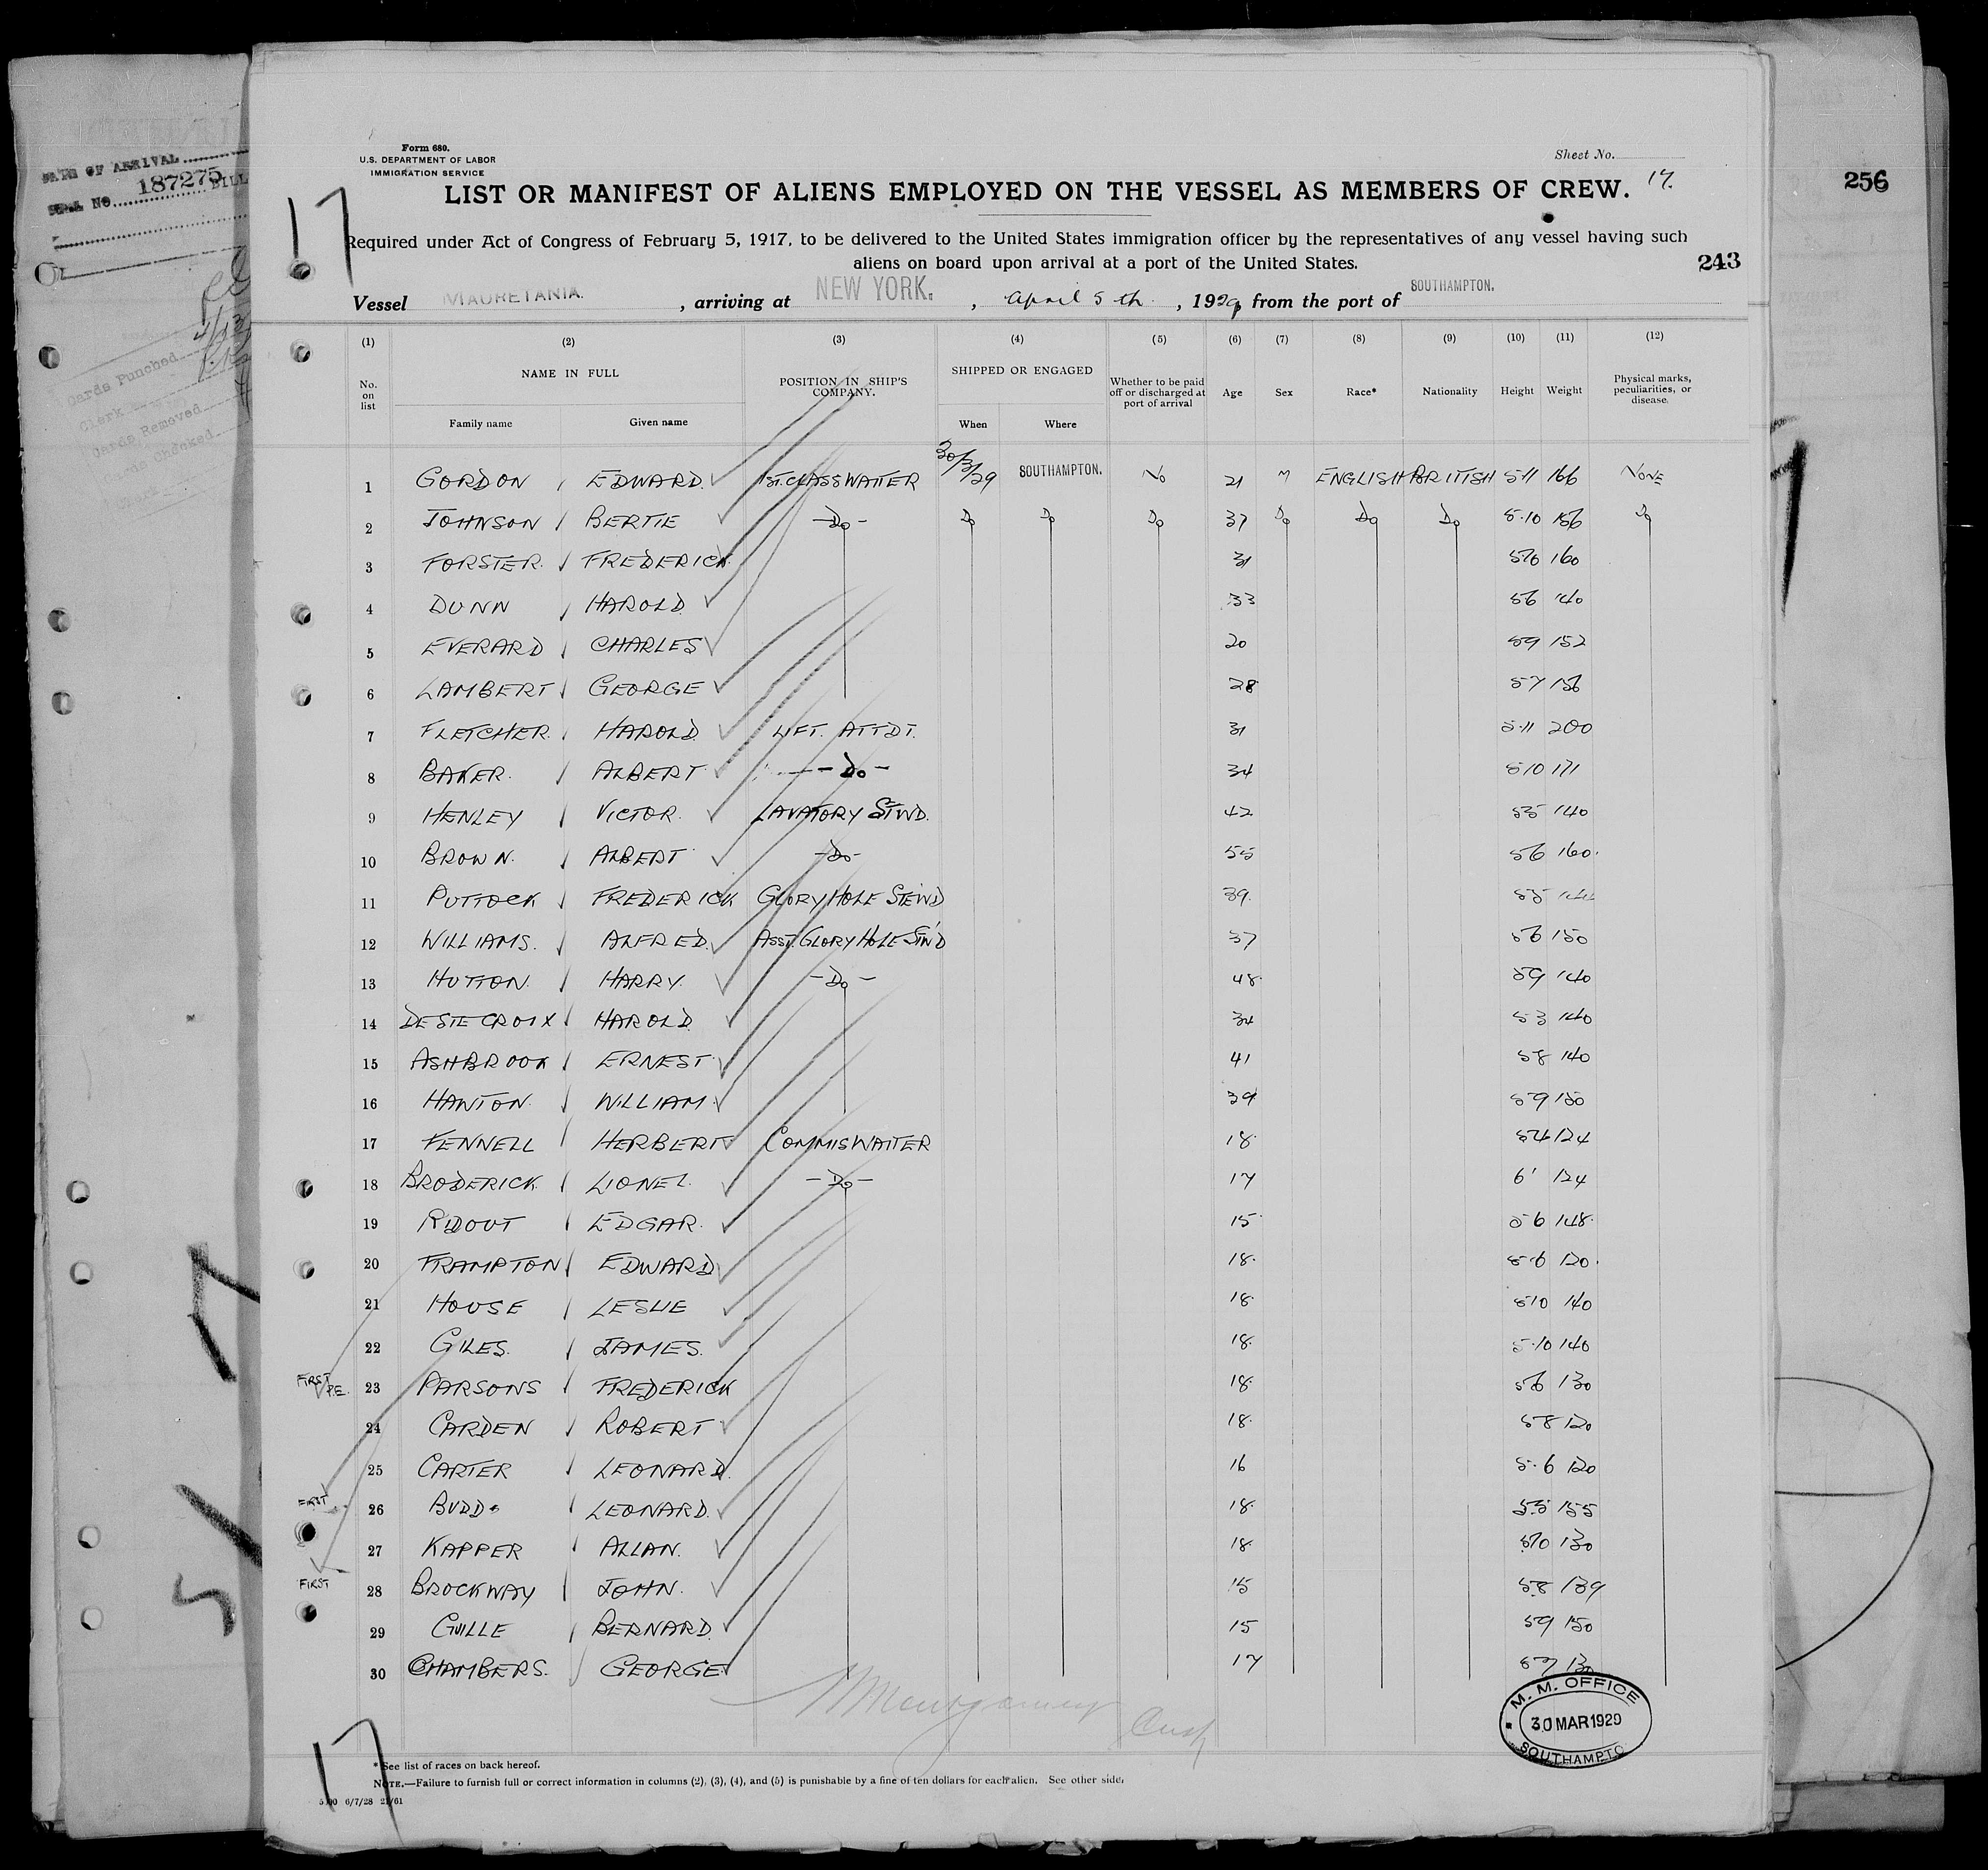 Form 680.
U.S. DEPARTMENT OF LABOR
IMMIGRATION SERVICE
Sheet No. 17.
LIST OR MANIFEST OF ALIENS EMPLOYED ON THE VESSEL AS MEMBERS OF CREW.
Required under Act of Congress of February 5, 1917, to be delivered to the United States immigration officer by the representatives of any vessel having such
aliens on board upon arrival at a port of the United States.
243
256
DATE OF ARRIVAL
187275
Cards Punched
Clerk
Cards Removed
Cards Checked
17
Vessel MAURETANIA. , arriving at NEW YORK. , April 5 th , 1929 from the port of SOUTHAMPTON.
(1) (2) (3) (4) (5) (6) (7) (8) (9) (10) (11) (12)
No. on list NAME IN FULL Family name Given name POSITION IN SHIP'S COMPANY. SHIPPED OR ENGAGED When Where Whether to be paid off or discharged at port of arrival Age Sex Race* Nationality Height Weight Physical marks, peculiarities, or disease.
1 GORDON EDWARD 1ST.CLASS WAITER 30/3/29 SOUTHAMPTON. No 21 M ENGLISH BRITISH 5-11 166 NONE
2 JOHNSON BERTIE -Do- Do Do Do 37 Do Do Do 5-10 156 Do
3 FORSTER. FREDERICK 31 5-10 160
4 DUNN HAROLD 33 56 140
5 EVERARD CHARLES 20 59 152
6 LAMBERT GEORGE 28 57 156
7 FLETCHER. HAROLD LIFT. ATTDT. 31 5-11 200
8 BAKER. ALBERT -Do- 34 510 171
9 HENLEY VICTOR. LAVATORY STWD. 42 55 140
10 BROWN. ALBERT -Do- 55 56 160.
11 PUTTOCK FREDERICK GLORY HOLE STEWD 39. 55
12 WILLIAMS. ALFRED. ASST. GLORY HOLE STWD 37 56 150
13 HUTTON. HARRY. -Do- 48. 59 140
14 DE STE CROIX HAROLD 34 53 140
15 ASHBROOK ERNEST 41 58 140
16 HAWTON. WILLIAM 59 150
17 FENNELL HERBERT COMMIS WAITER 18. 54 124
18 BRODERICK LIONEL. -Do- 17 6' 124
19 RIDOUT EDGAR. 15 56 148.
20 FRAMPTON EDWARD 18. 5-6 120.
21 HOUSE LESLIE 18. 510 140
22 GILES. JAMES. 18. 5-10 140
FIRST P.E. 23 PARSONS FREDERICK 18. 56 130
24 CARDEN ROBERT 18. 58 120
25 CARTER LEONARD. 16 5-6 120
FIRST 26 BUDD LEONARD. 18. 55 155
27 KAPPER ALLAN. 18. 510 130
FIRST 28 BROCKWAY JOHN. 15 58 139
29 GUILLE BERNARD. 15 59 150
30 CHAMBERS. GEORGE 17 57 130
Montgomery
M. M. OFFICE
30 MAR 1929
SOUTHAMPTO
17
* See list of races on back hereof.
NOTE.—Failure to furnish full or correct information in columns (2), (3), (4), and (5) is punishable by a fine of ten dollars for each alien. See other side.
6/7/28